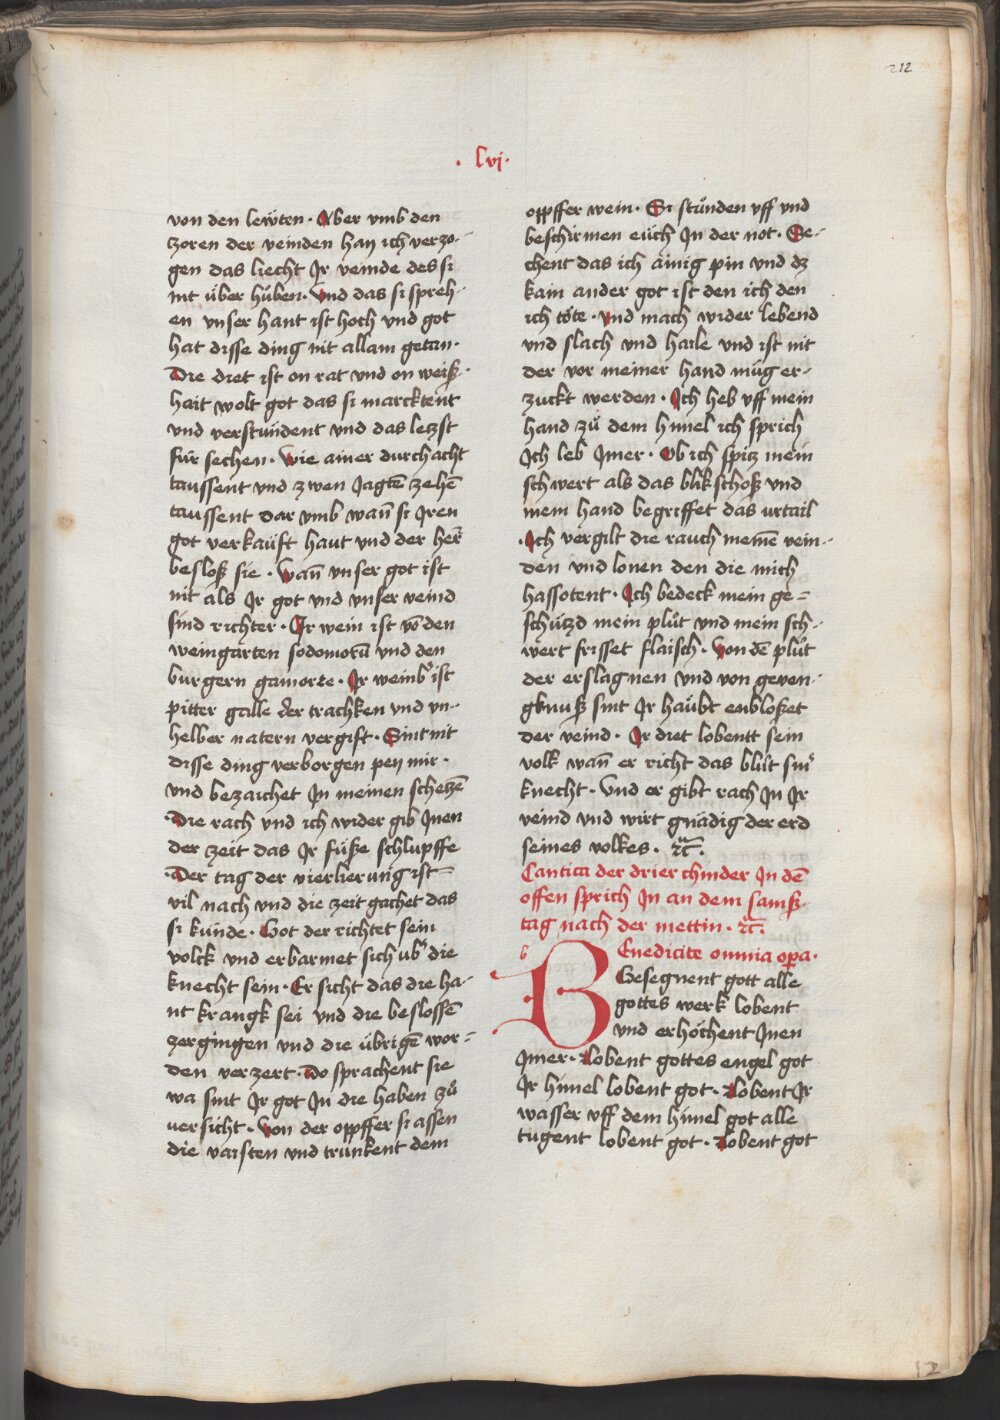 212
· lvj ·
von den lewten · Aber vmb den
zoren der veinden han ich verzo-
gen das liecht Jr veinde des si
nit über hüben · Vnd das si spreh-
en vnser hant ist hoch vnd got
hat disse ding nit allain getan ·
Die diet ist on rat vnd on weisz-
hait wolt got das si marcktent
vnd verstundent vnd das letzst
für sechen · Wie ainer durchacht
taussent vnd zwen Jagtē zehē
taussent dar vmb wañ si Jren
got verkaüft haut vnd der her̄
besloß sie · Wañ vnser got ist
nit als Jr got vnd vnser veind
sind richter · Jr wein ist vō den
weingarten sodomorū vnd den
burgern gamorre · Jr weinbʼ ist
pitter galle der trachken vnd vn-
helber natern vergift · Sint nit
disse ding verborgen pey mir ·
vnd bezaichet Jn meinen schetzē
Die rach vnd ich wider gib Jnen
der zeit das Jr füße schlupffe
Der tag der vierlierung ist
vil nach vnd die zeit gachet das
si kunde · Got der richtet sein
volck vnd erbarmet sich übʼ die
knecht sein · Er sicht das die ha-
nt krangk sei vnd die beslossē
zergingen vnd die übrigē wor-
den verzert · Do sprachent sie
wa sint Jr got Jn die haben zů
versicht · Von der oppffer si assen
die vaisten vnd trunkent dem
oppffer wein · Si stůnden vff vnd
beschirmen eüch Jn der not · Se-
chent das ich ainig pin vnd dz
kain ander got ist den ich den
ich töte · vnd mach wider lebend
vnd slach vnd haile vnd ist nit
der vor meiner hand müg er-
zuckt werden · Ich heb vff mein
hand zů dem himel ich sprich
Ich leb Jmer · Ob ich spitz mein
schwert als das blikschoß vnd
mein hand begriffet das vrtail
Ich vergilt die rauch meinē vein-
den vnd lonen den die mich
hassotent · Ich bedeck mein ge-
schützd mein plůt vnd mein sch-
wert frisset flaisch · Von dē plůt
der erslagnen vnd von geven-
gknuß sint Jr haübt enbloßet
der veind · Jr diet lobentt sein
volk wañ er richt das blůt sinʼ
knecht · Vnd er gibt rach Jn Jr
veind vnd wirt gnädig der erd
seines volkes · ꝛc̃ ·
Cantica der drier chinder Jn dē
offen sprich Jn an dem samß-
tag nach der mettin · ꝛc̃ ·
b
BEnedicite omnia opa ·
Gesegnent gott alle
gottes werk lobent
vnd erhöchent Jnen
Jmer · Lobent gottes engel got
Jr himel lobent got · Lobent Jr
wasser vff dem himel got alle
tugent lobent got · Lobent got
12